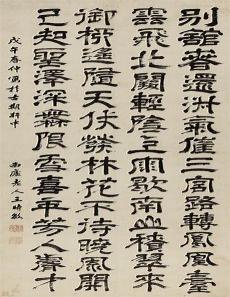 別舘春還淑氣催三宮路轉鳳凰臺
雲飛北闕輕陰散雨歇南山積翠來
御柳遙隨天仗發林花不待曉風開
已知聖澤深無限更喜年芳入睿才
戊午春仲寫於軒中
西廬老人王時敏